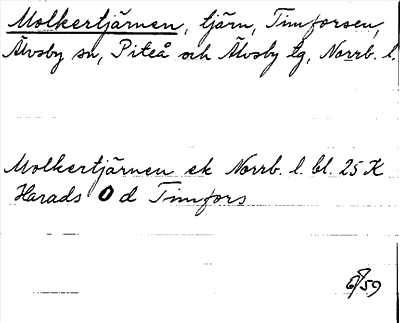 Molkertjärnen, tjärn, Timforsen,
Älvsby sn, Piteå och Älvsby tg, Norrb. l.
Molkertjärnen ek Norrb. l. bl. 25 K
Harads O d Timfors